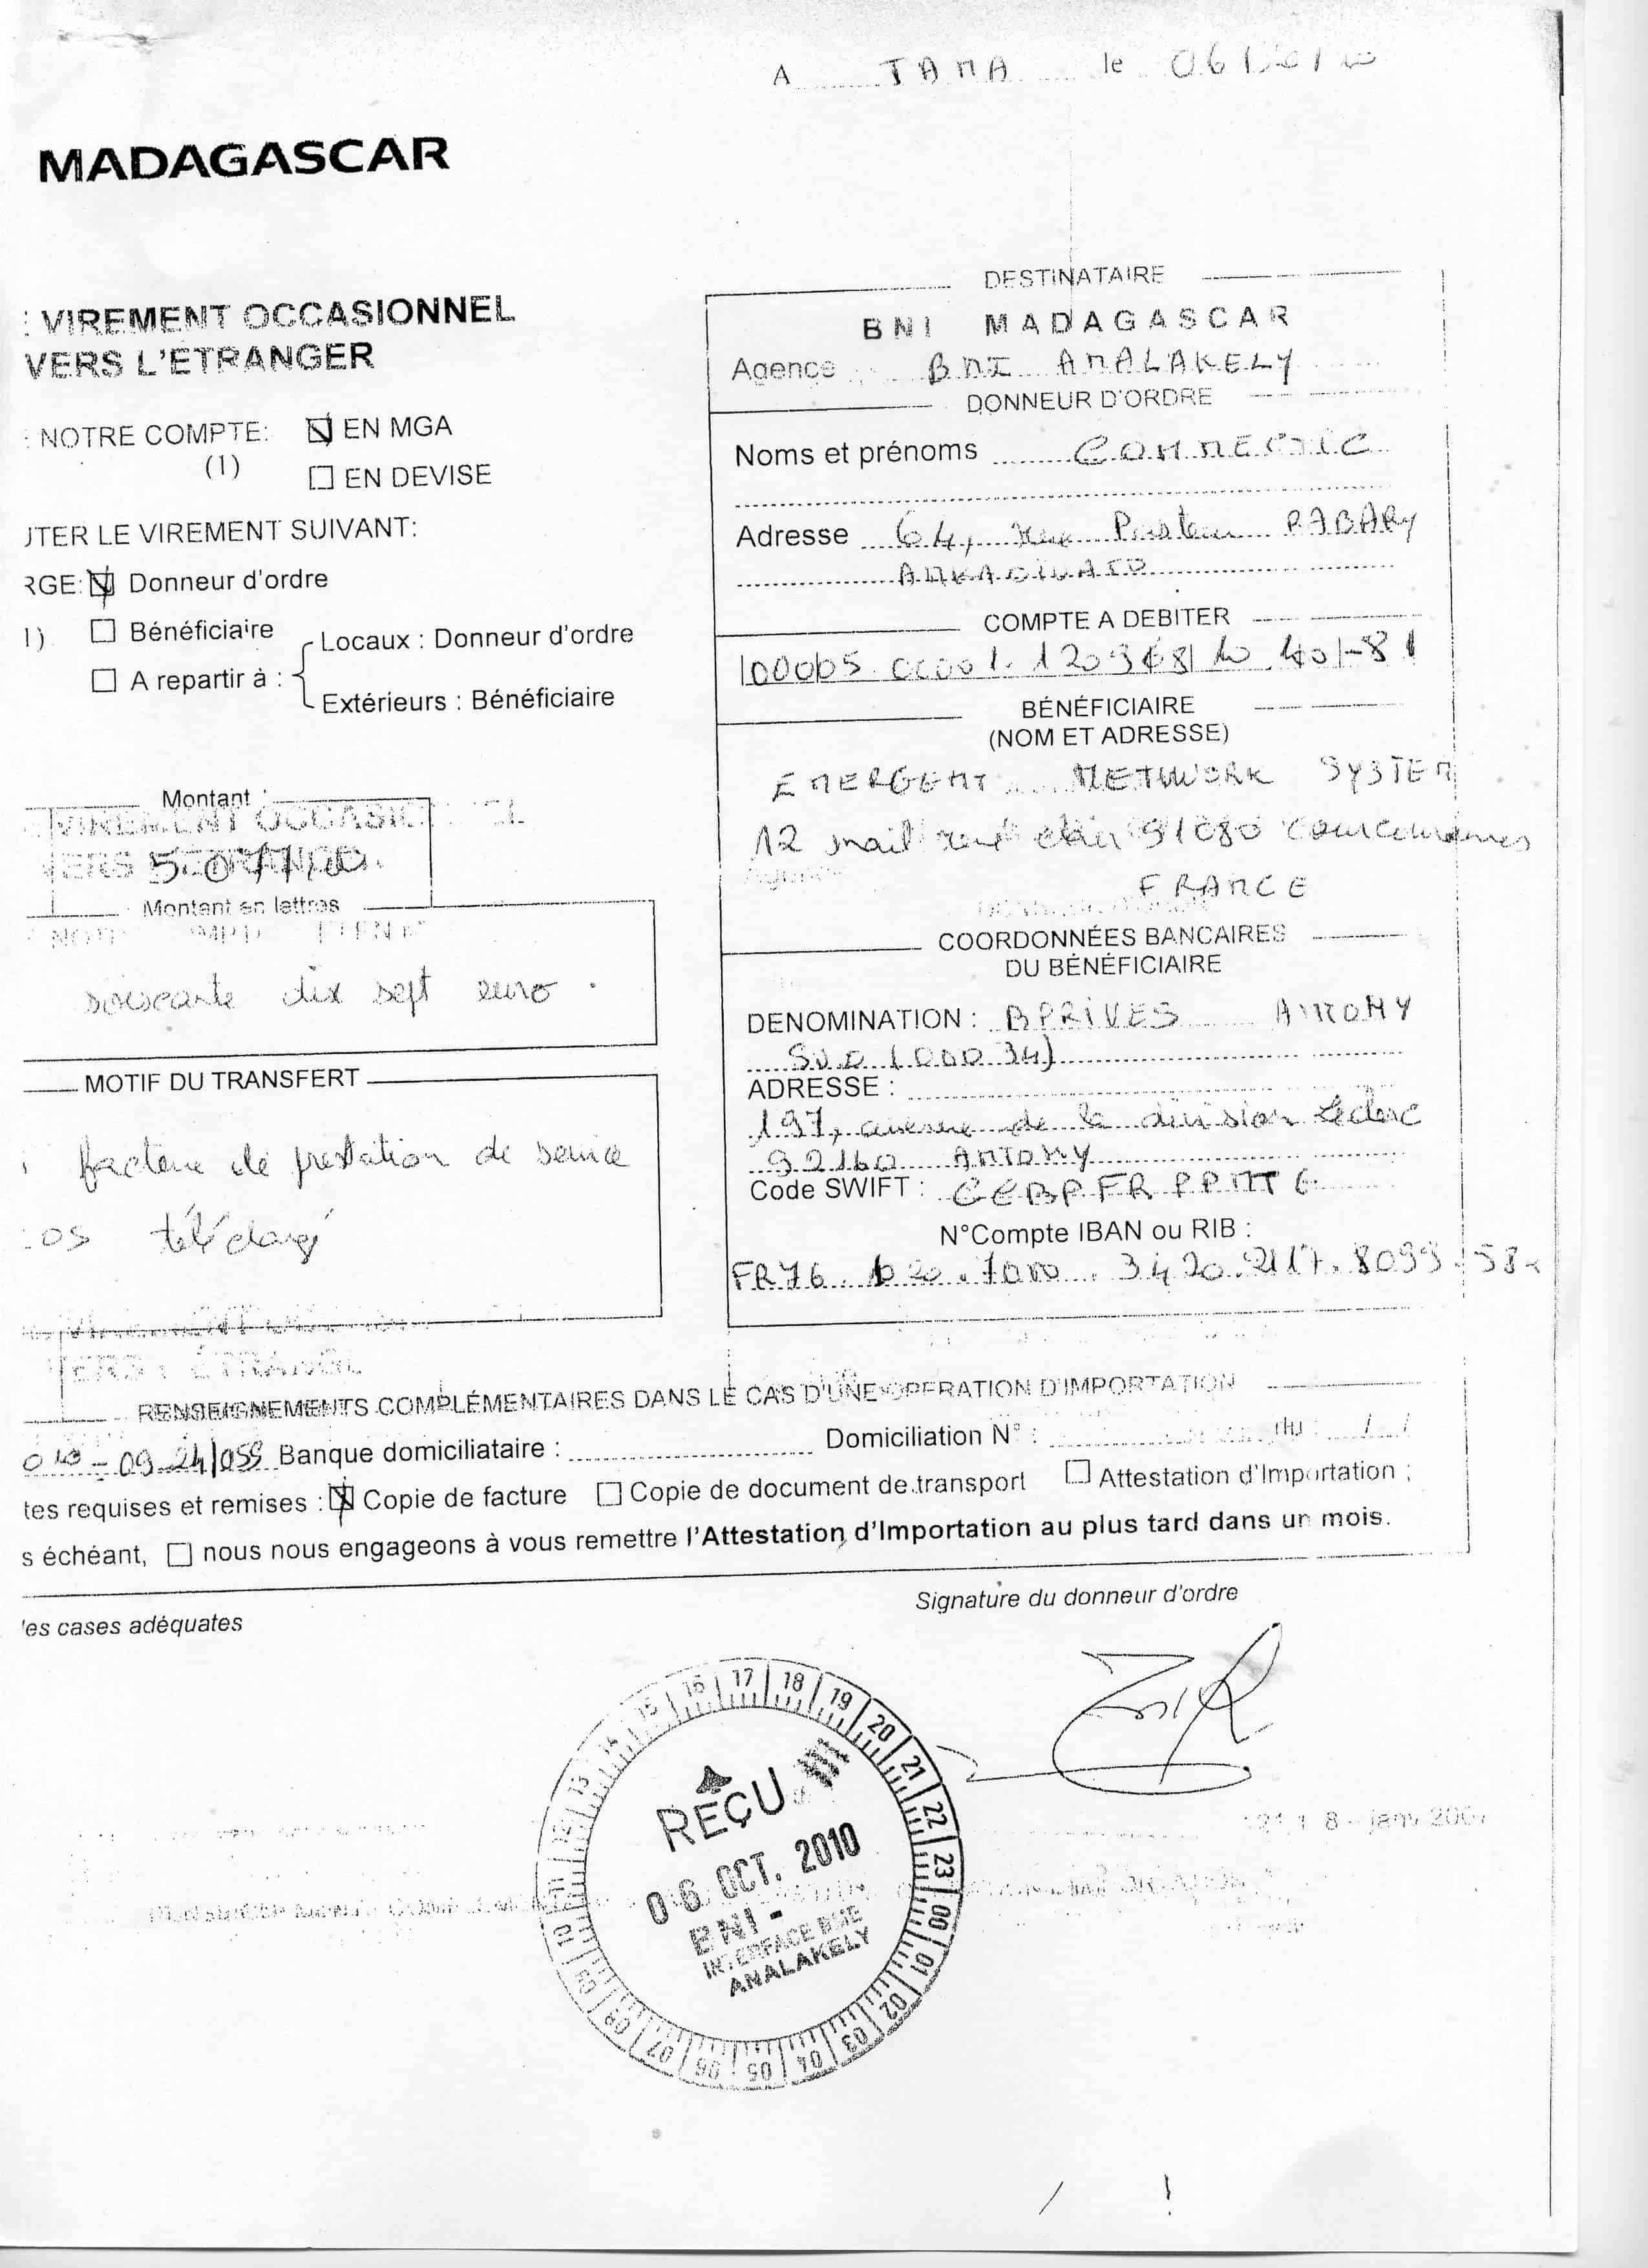 A TANA le 06/10/10
MADAGASCAR
: VIREMENT OCCASIONNEL
VERS L'ETRANGER
: NOTRE COMPTE: EN MGA
(1)
EN DEVISE
UTER LE VIREMENT SUIVANT:
RGE: Donneur d'ordre
1) Bénéficiaire
Locaux : Donneur d'ordre
A repartir à :
Extérieurs : Bénéficiaire
Montant :
VIREMENT OCCASIONNEL
5.077,00
Montant en lettres
soixante dix sept euro .
MOTIF DU TRANSFERT
facture de prestation de service
DESTINATAIRE
BNI MADAGASCAR
Agence BNI ANALAKELY
DONNEUR D'ORDRE
Noms et prénoms CONNECTIC
Adresse 64, rue Pasteur RABARY
ANKADIVATO
COMPTE A DEBITER
BÉNÉFICIAIRE
(NOM ET ADRESSE)
EMERGENT NETWORK SYSTEM
12 mail rené clair 91080 courcouronnes
FRANCE
COORDONNÉES BANCAIRES
DU BÉNÉFICIAIRE
DENOMINATION : BPRIVES ANTONY
SUD (00034)
ADRESSE :
197, avenue de la division Leclerc
92160 ANTONY
Code SWIFT :
N°Compte IBAN ou RIB :
RENSEIGNEMENTS COMPLÉMENTAIRES DANS LE CAS D'UNE OPERATION D'IMPORTATION
Banque domiciliataire : Domiciliation N° : du : / /
tes requises et remises : Copie de facture Copie de document de transport Attestation d'Importation ;
s échéant, nous nous engageons à vous remettre l'Attestation d'Importation au plus tard dans un mois.
les cases adéquates
Signature du donneur d'ordre
REÇU
06 OCT. 2010
BNI -
INTERFACE
ANALAKELY
15 16 17 18 19 20 21 22 23 00 01 02 03 04 05 06 07 08 09 10 11 12 13 14
janv 2007